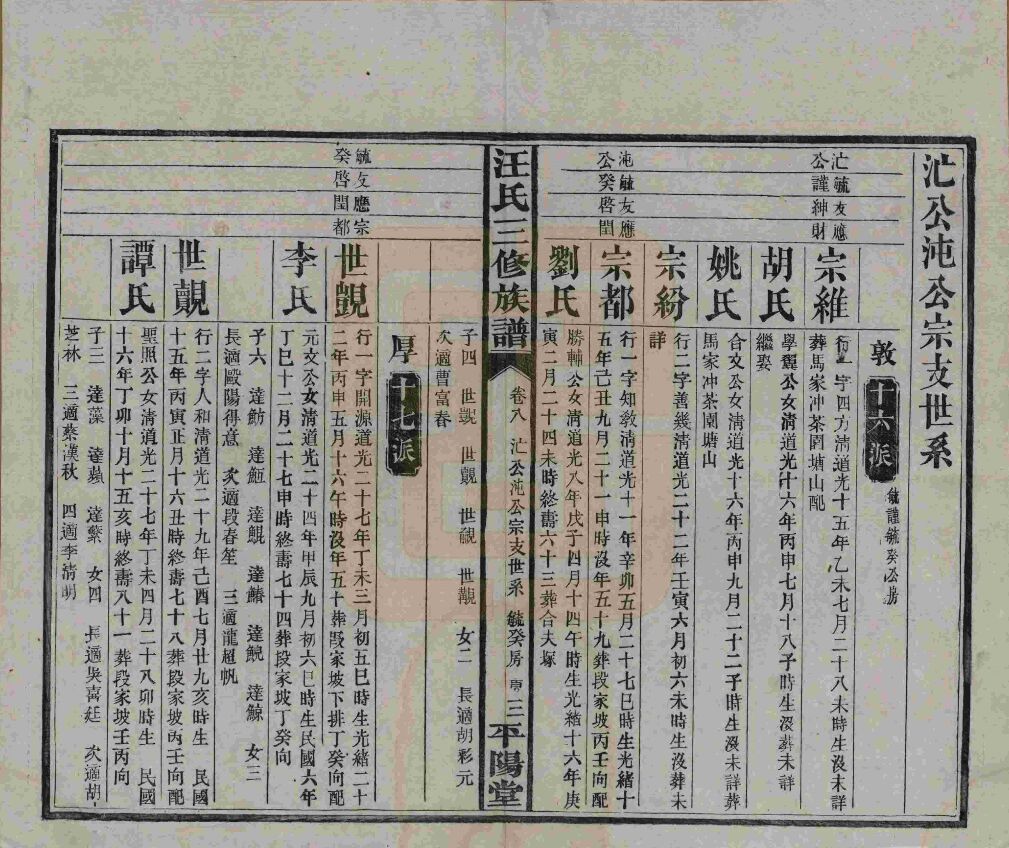 汒公沌公宗支世系
敦
十六派
毓謹毓癸公房
汒公
毓謹
友紳
應財
宗維
行一字四方清道光十五年乙未七月二十八未時生沒未詳
葬馬家冲茶園塘山配
胡氏
學鸞公女清道光十六年丙申七月十八子時生沒葬未詳
繼娶
姚氏
合文公女清道光十六年丙申九月二十二子時生沒未詳葬
馬家冲茶園塘山
宗紛
行二字善幾清道光二十二年壬寅六月初六未時生沒葬未
詳
沌公
毓癸
友啓
應閏
宗都
行一字知敎清道光十一年辛卯五月二十七巳時生光緒十
五年己丑九月二十一申時沒年五十九葬段家坡丙壬向配
劉氏
勝輔公女清道光八年戊子四月十四午時生光緒十六年庚
寅二月二十四未時終壽六十三葬合夫塚
汪氏三修族譜
卷八
汒公沌公宗支世系
毓癸房
三
平陽堂
子四 世覬 世覿 世覶 世覯 女二 長適胡彩元
次適曹富春
厚
十七派
毓癸
友啓
應閏
宗都
世覬
行一字開源道光二十七年丁未三月初五巳時生光緒二十
二年丙申五月十六午時沒年五十葬段家坡下排丁癸向配
李氏
元文公女清道光二十四年甲辰九月初六巳時生民國六年
丁巳十二月二十七申時終壽七十四葬段家坡丁癸向
子六 達魴 達䱎 達鯤 達鰆 達鯢 達鯨 女三
長適歐陽得意 次適段春笙 三適龍超帆
世覿
行二字人和清道光二十九年己酉七月廿九亥時生 民國
十五年丙寅正月十六丑時終壽七十八葬段家坡丙壬向配
譚氏
聖照公女清道光二十七年丁未四月二十八卯時生 民國
十六年丁卯十月十五亥時終壽八十一葬段家坡壬丙向
子三 達藻 達蘋 達蘩 女四 長適吳高廷 次適胡
芝林 三適蔡漢秋 四適李清胡